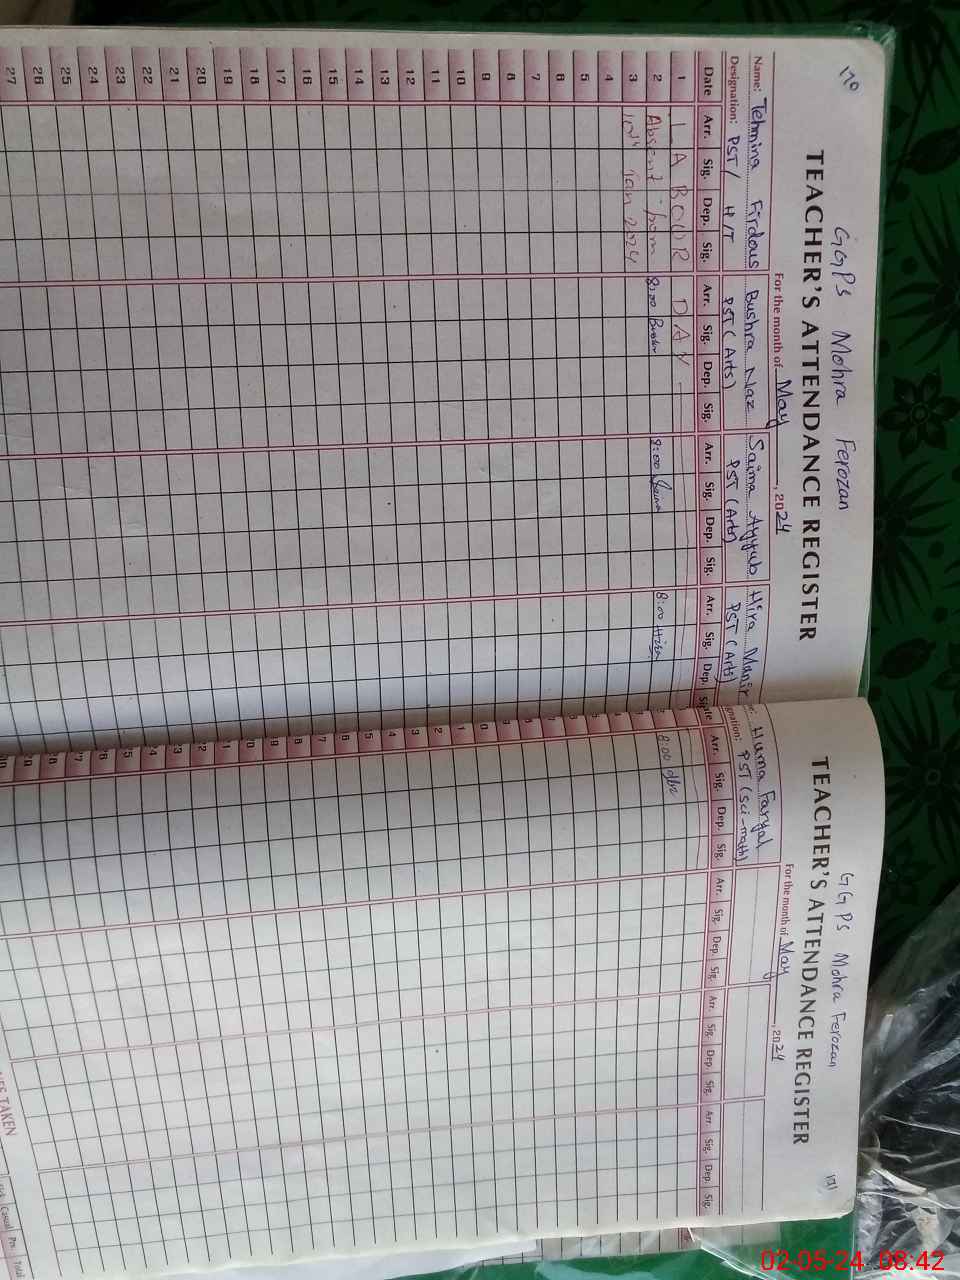 170
GGPS Mohra Ferozan
TEACHER'S ATTENDANCE REGISTER
For the month of May, 2024
Name: Tehmina Firdous Bushra Naz Saima Ayyub Hira Munir
Designation: PST/ H/T PST (Arts) PST (Arts) PST (Arts)
Date Arr. Sig. Dep. Sig. Arr. Sig. Dep. Sig. Arr. Sig. Dep. Sig. Arr. Sig. Dep. Sig.
1 LABOUR DAY
2 Absent from 8:00 8:00 8:00 Hira
3 Jan 2024
4
5
6
7
8
9
10
11
12
13
14
15
16
17
18
19
20
21
22
23
24
25
26
27
171
GGPS Mohra Ferozan
TEACHER'S ATTENDANCE REGISTER
For the month of May, 2024
Huma Faryal
PST (Sci-math)
Arr. Sig. Dep. Sig. Arr. Sig. Dep. Sig. Arr. Sig. Dep. Sig. Arr Sig. Dep. Sig.
8:00
TAKEN
Casual Total
02-05-24 08:42